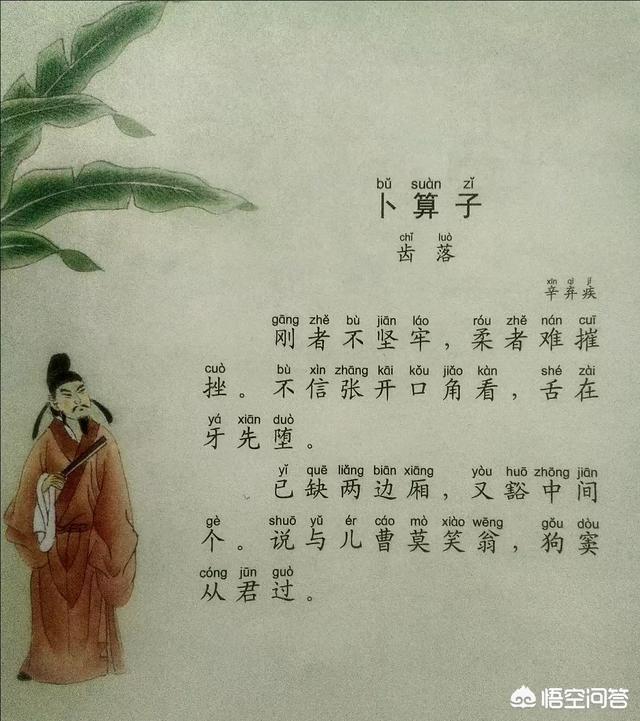 bǔ suàn zǐ
卜算子
chǐ luò
齿落
xīn qì jí
辛弃疾
gāng zhě bù jiān láo róu zhě nán cuī
刚者不坚牢，柔者难摧
cuò bù xìn zhāng kāi kǒu jiǎo kàn shé zài
挫。不信张开口角看，舌在
yá xiān duò
牙先堕。
yǐ quē liǎng biān xiāng yòu huō zhōng jiān
已缺两边厢，又豁中间
gè shuō yǔ ér cáo mò xiào wēng gǒu dòu
个。说与儿曹莫笑翁，狗窦
cóng jūn guò
从君过。
悟空问答